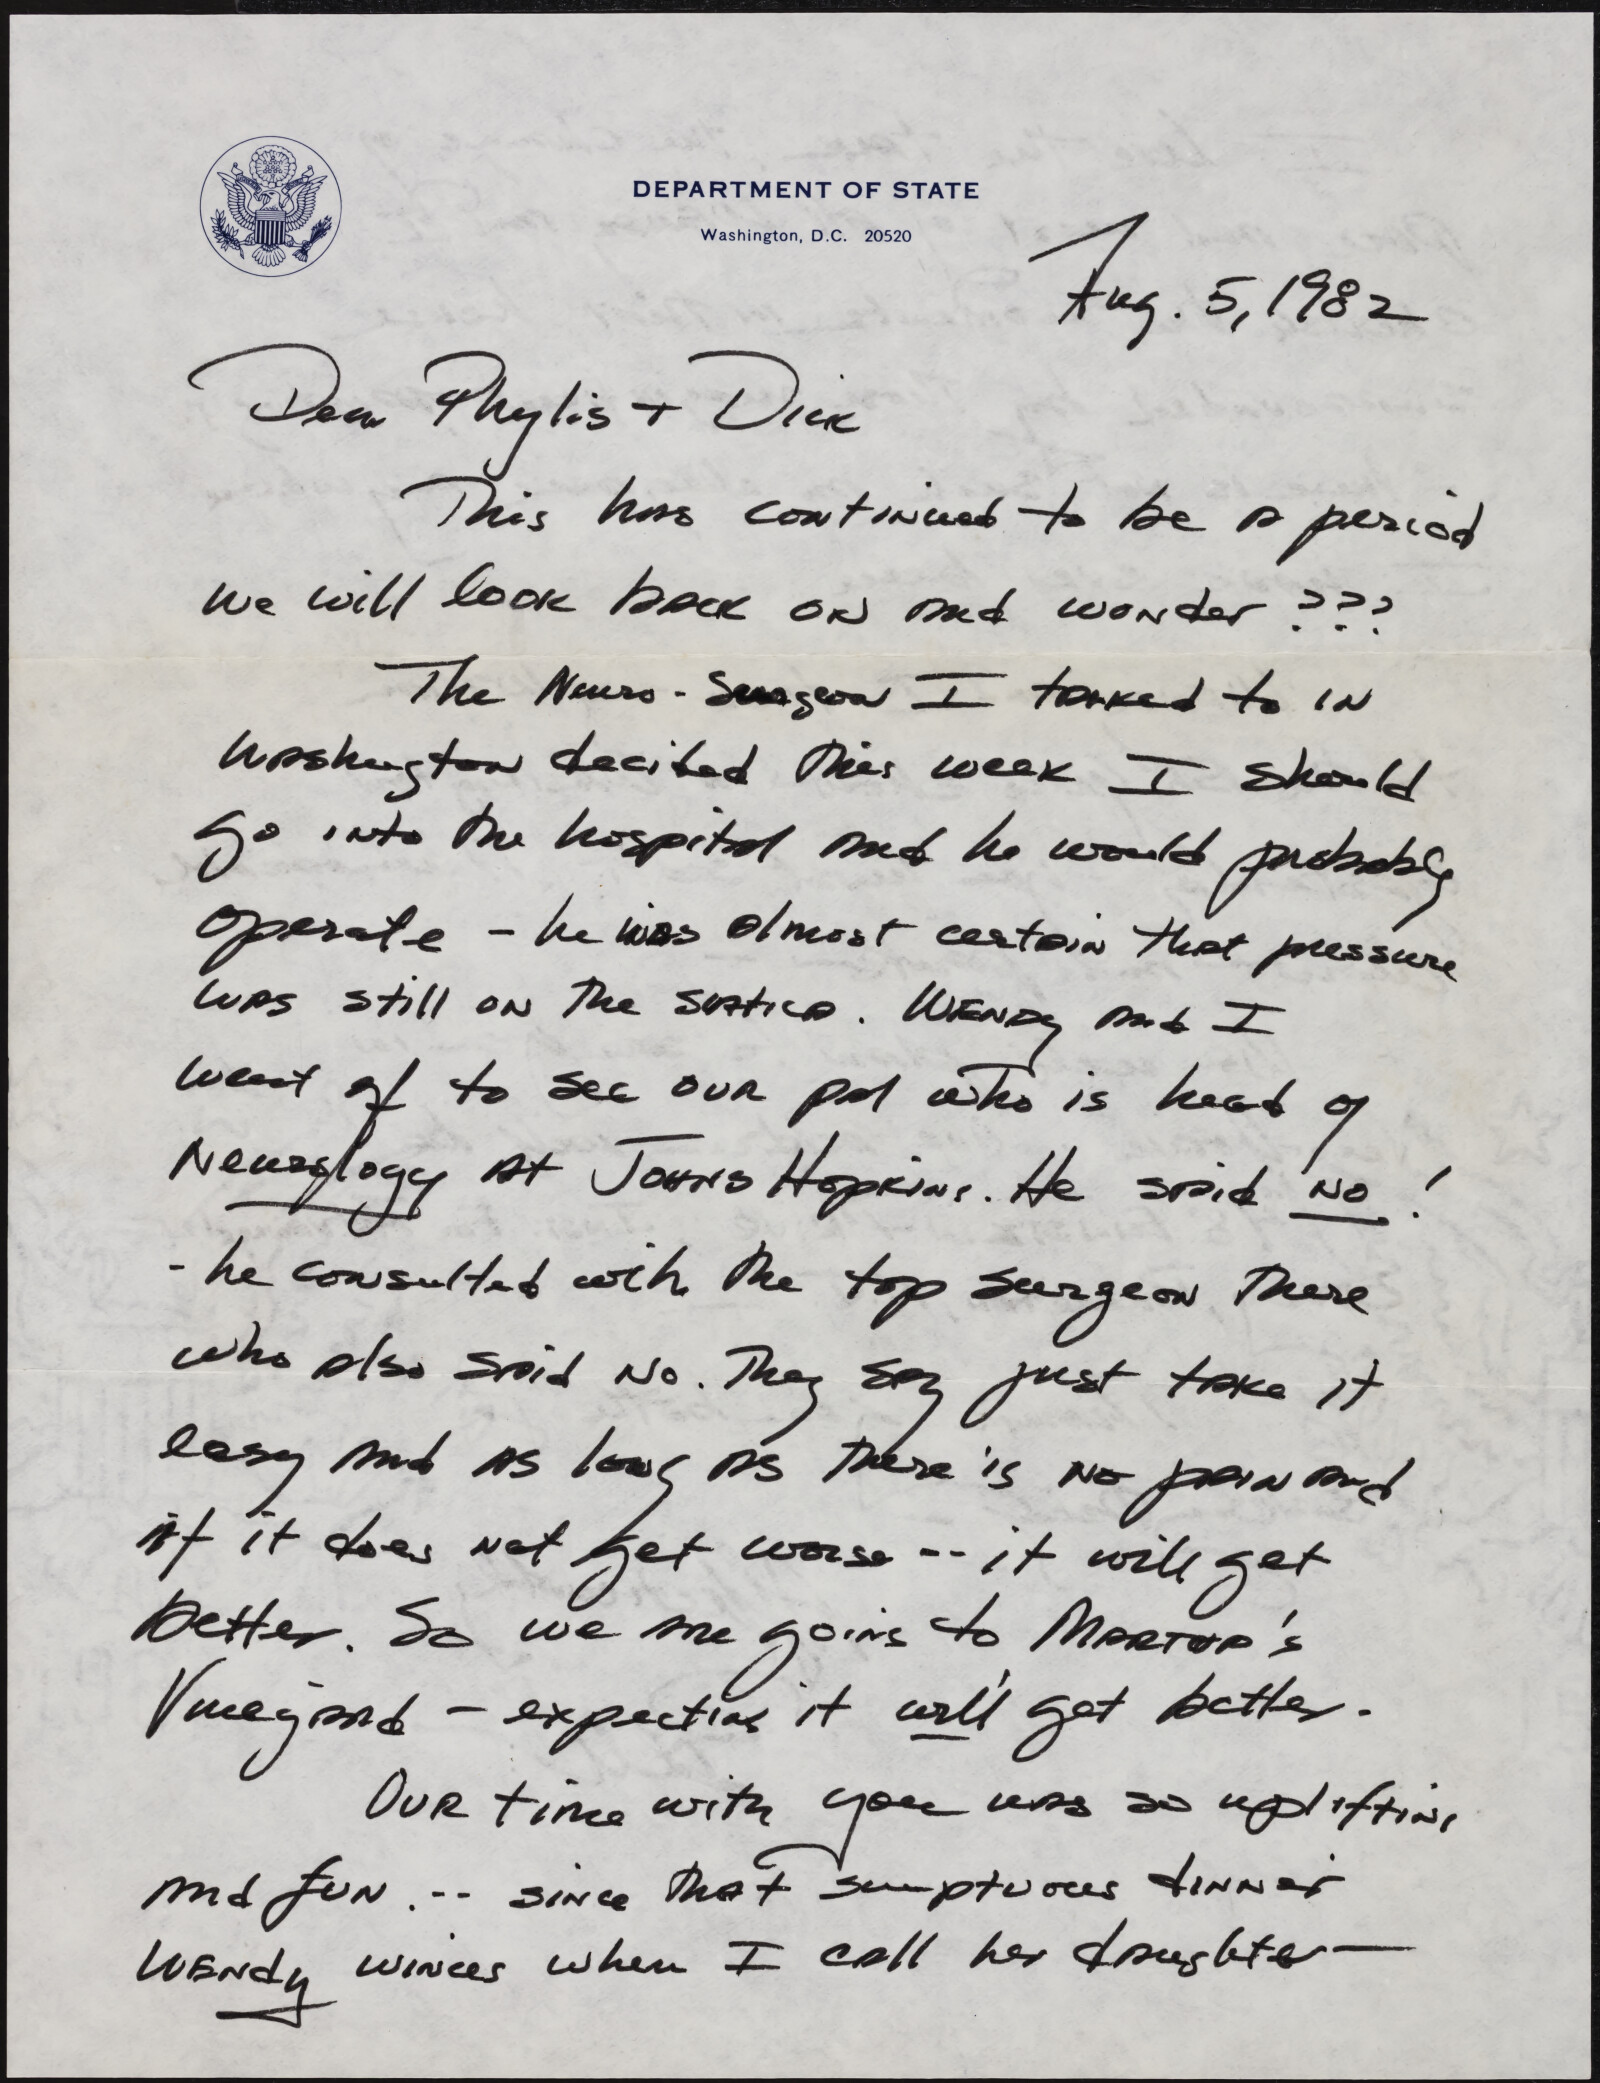 DEPARTMENT OF STATE
Washington, D.C. 20520
Aug. 5, 1982
Dear Phylis + Dick
This has continued to be a period
we will look back on and wonder ???
The Neuro-Surgeon I talked to in
Washington decided this week I should
go into the hospital and he would probably
operate - he was almost certain that pressure
was still on the sciatica. Wendy and I
went off to see our pal who is head of
Neurology at Johns Hopkins. He said no!
- he consulted with the top surgeon there
who also said no. They say just take it
easy and as long as there is no pain and
if it does not get worse -- it will get
better. So we are going to Martha's
Vineyard - expecting it will get better.
Our time with you was so uplifting
and fun. -- since that sumptuous dinner
Wendy winces when I call her daughter —